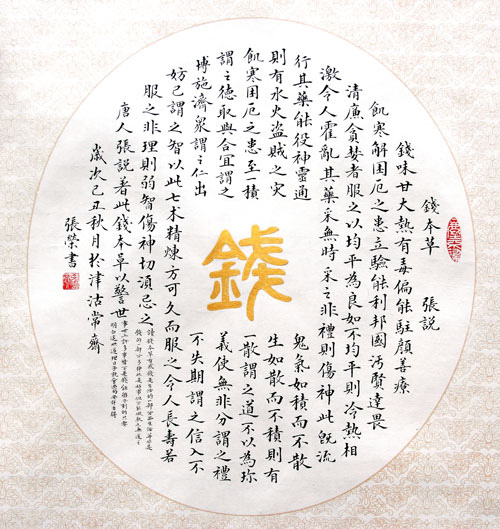 錢本草 張說
錢味甘大熱有毒偏能駐顏善療
飢寒解困厄之患立驗能利邦國汚賢達畏
清廉貪婪者服之以均平為良如不均平則冷熱相
激令人霍亂其藥采無時采之非禮則傷神此既流
行其藥能役神靈通鬼氣如積而不散
則有水火盜賊之灾生如散而不積則有
飢寒困厄之患至一積一散謂之道不以為珎
謂之德取與合宜謂之義使無非分謂之禮
博施濟衆謂之仁出不失期謂之信入不
妨己謂之智以此七术精煉方可久而服之令人長壽若
服之非理則弱智傷神切須忌之
唐人張說著此錢本草以警世
歲次己丑秋月於津沽常齋
張榮書
錢